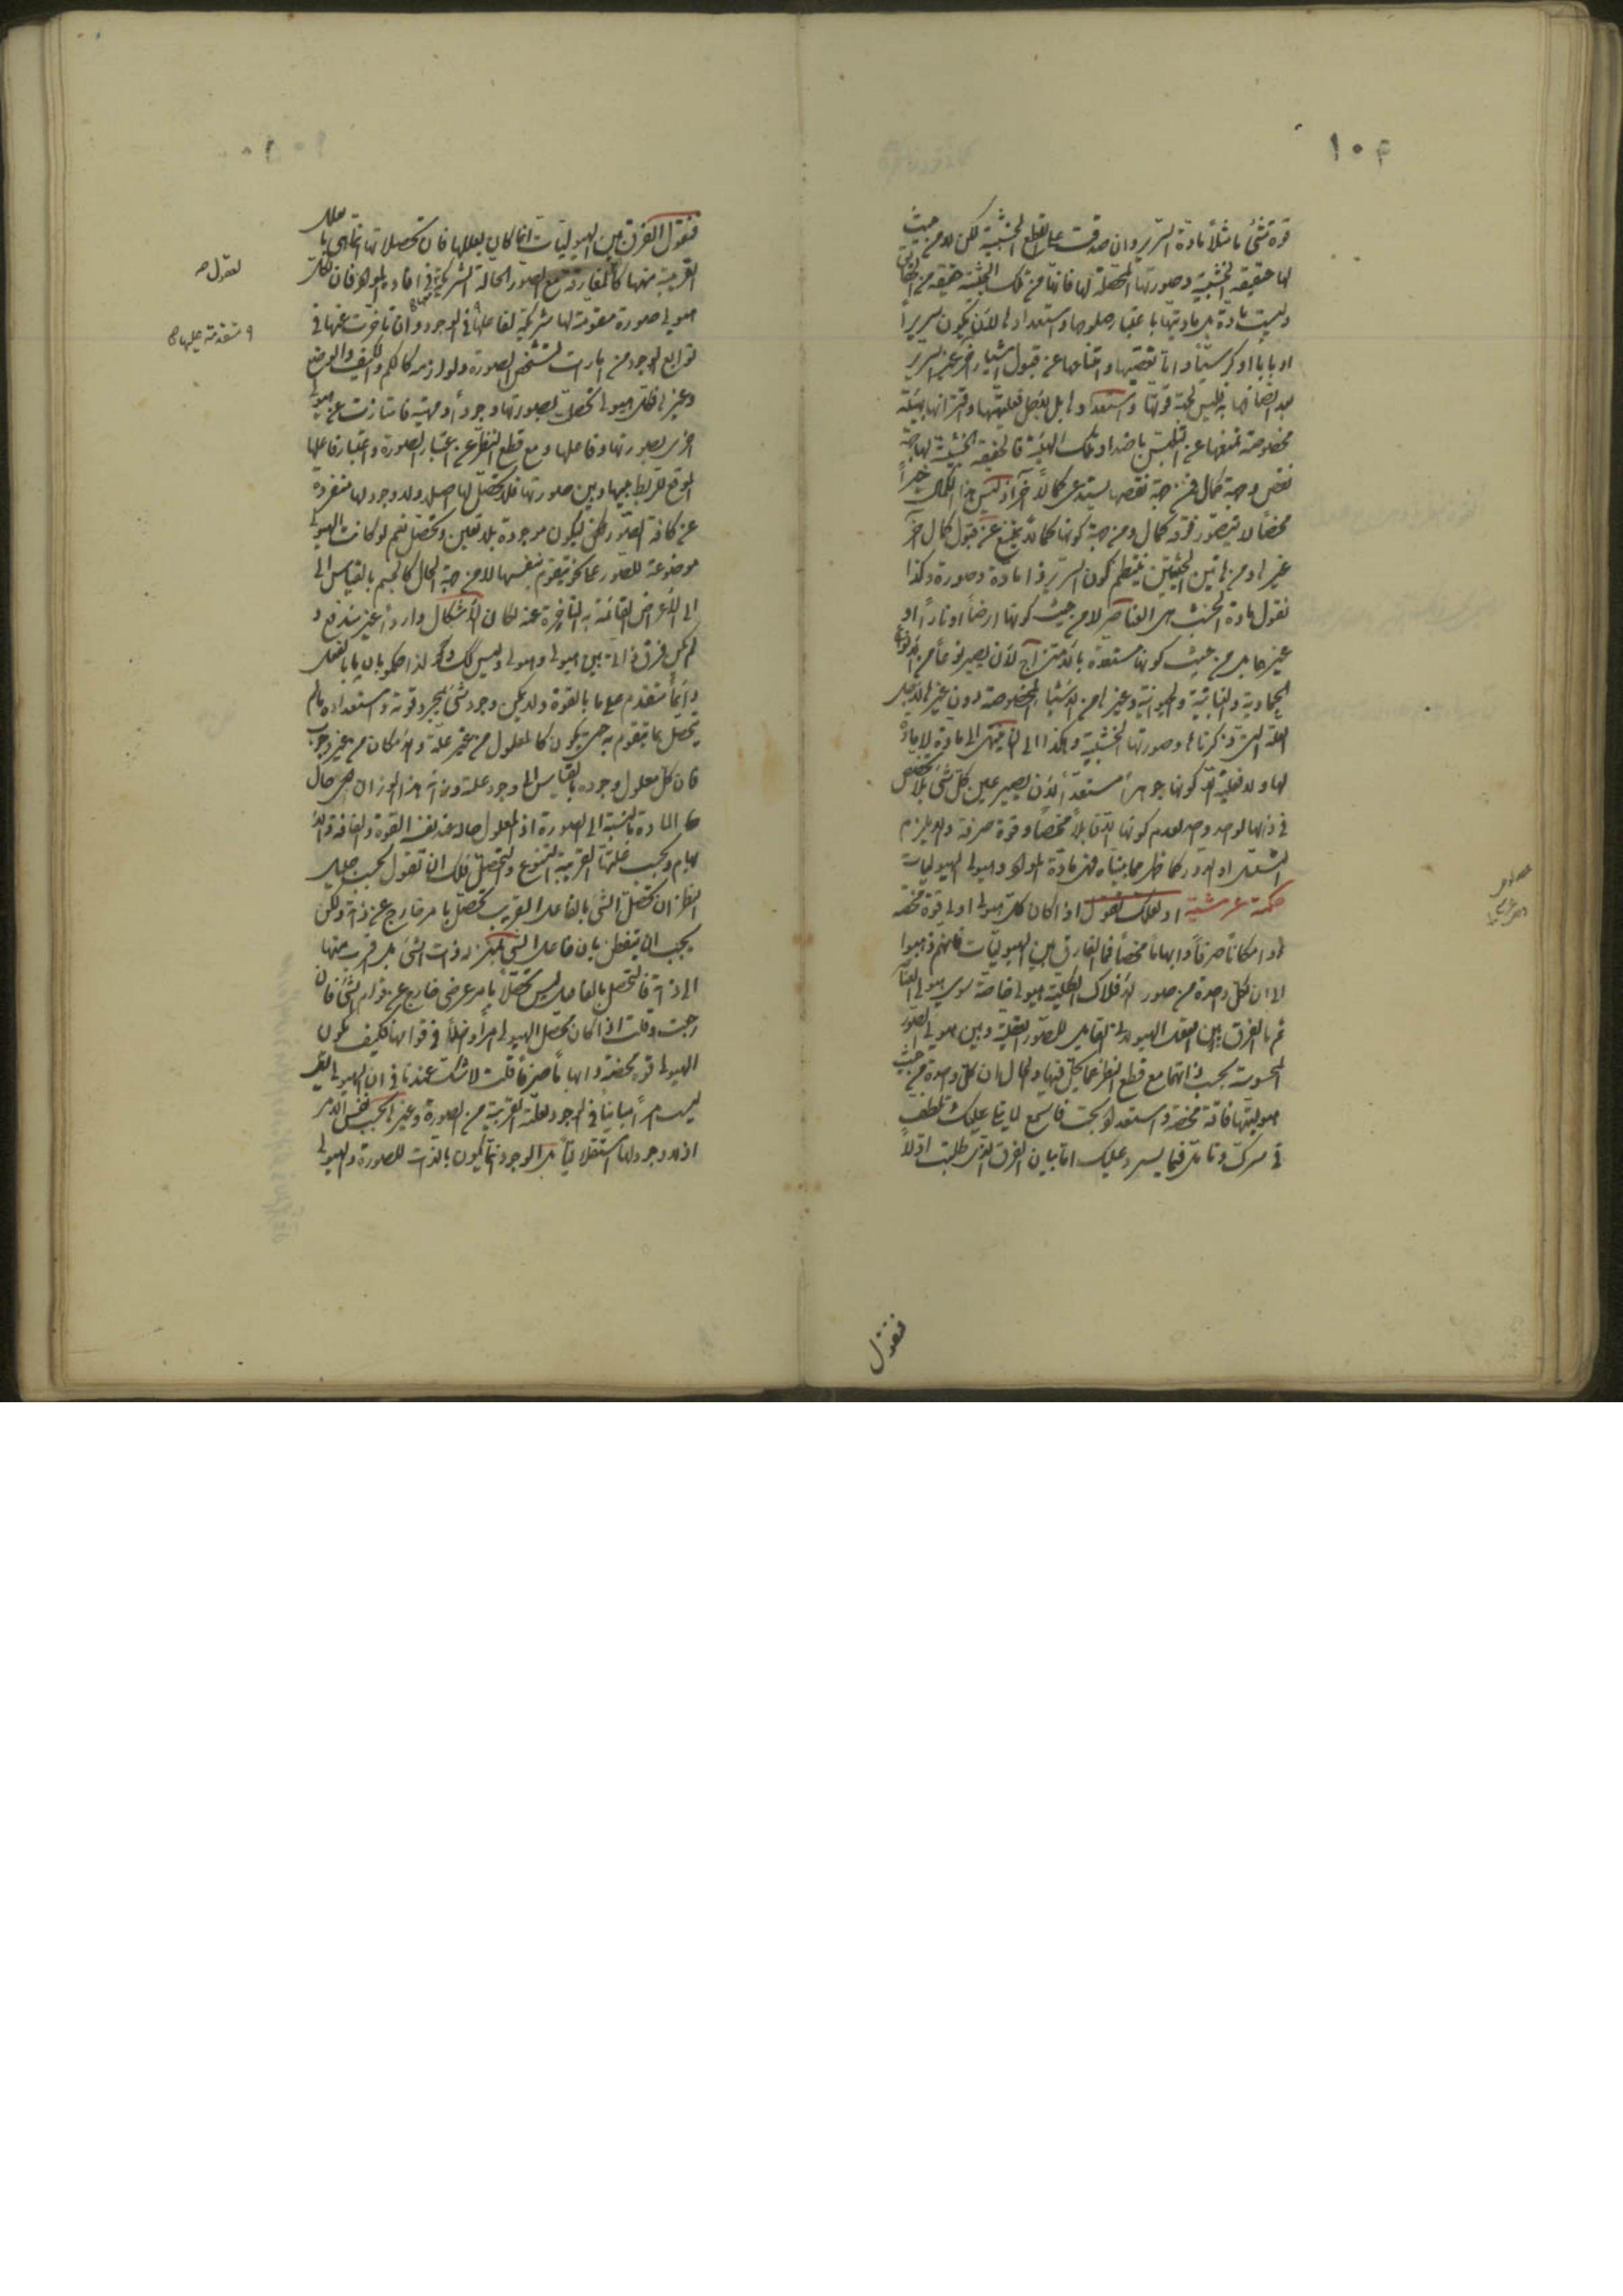 ١٠٤
قوة شئ ما مثلاً مادة السرير وان صدقت على القطع الخشبية لكن لا من حيث
لها حقيقة الخشبية وصورتها المحصلة لها فانها من تلك الحيثية حقيقة من الحقائق
وليست مادة بل مادتها باعتبار صلوحها واستعدادها لان يكون سريراً
او بابا او كرسيّا واما تعصيها وامتناعها عن قبول اشياء اخر غير السرير
بعد اتصافها به فليس لجهة قوتها واستعدادها بل لاجل فعليتها واقترانها بهيئة
مخصوصة تمنعها عن التلبس باضداد تلك الهيئة فالحقيقة الخشبية لها جهة
نقص وجهة كمال فمن جهة نقصها يستدعى كمالاً آخر اذ ليس هذا الكمال خيراً
محضاً لا يتصور فوقه كمال ومن جهة كونها كمالا تمتنع عن قبول كمال آخر
غيرا ومن هاتين الحيثيتين ينتظم كون السرير ذا مادة وصورة وكذا
نقول مادة الخشب هى العناصر لا من حيث كونها ارضاً او ناراً او
غيرها بل من حيث كونها مستعدة بالامتزاج لان يصير نوعاً من الانواع
الجمادية والنباتية والحيوانية وغيرها من الاشياء المخصوصة دون غيرها لاجل
العلة التى ذكرناها وصورتها الخشبية وهكذا الى ان ينتهى الى مادة لا مادة
لها ولا فعلية الا كونها جوهراً مستعداً لان يصير عين كل شئ بلا تخصص
فى ذاتها لواحد واحد لعدم كونها الا قابلاً محضاً وقوة صرفة والا يلزم
التسلسل او الدور كما ظهر مما بيناه فهى مادة المواد وهيولى الهيوليات
حكمة عرشية او لعلك تقول اذا كان كل هيولى اولى قوة محضة
او امكاناً صرفاً وابهاماً محضاً فما الفارق بين الهيوليات فانهم ذهبوا
الى ان لكل واحدة من صور الافلاك الكلية هيولى خاصة سوى هيولى العناصر
ثم ما الفرق بين العقل الهيولانى القابل للصور العقلية وبين هيولى الصور
المحسوسة بحسب ذاتهما مع قطع النظر عما يحل فيها والحال ان كل واحدة من حيث
هيوليتها فاقة محضة واستعداد بحت فاسمع لما يتلى عليك تلطف
فى سرك وتامل فيما يسرد عليك اما بيان الفرق الذى طلبت اولاً
فنقول
فنقول الفرق بين الهيوليات انما كان بعللها فان تحصلاتها انما هى بالعلل
القريبة منها كالمفارقة مع الصور الحالة الشريكة فى افادة المواد فان لكل
هيولى صورة مقومة لها شريكة لفاعلها فى الوجود وان تاخرت عنها فى
توابع الوجود من امارات لتشخص الصورة ولوازمه كالكم والكيف والوضع
وغيرها فكل هيولى تحصلت بصورتها وجوداً وماهية فامتازت عن هيولى
اخرى بصورتها وفاعلها ومع قطع النظر عن اعتبار الصورة واعتبار فاعلها
الموقع للربط بينها وبين صورتها فلا تحصل لها اصلا ولا وجود لها منفردة
عن كافة الصور لكى يكون موجودة بلا تعين وتحصل نعم لو كانت الهيولى
موضوعة للصور عما كونه متقوم بنفسها لا من جهة الحال كالجسم بالقياس الى
الى الاعراض القائمة به المتاخرة عنه لكان الاشكال وارداً غير مندفع و
لم يكن فرق ذاتى بين هيولى وهيولى وليس كذلك ولذا حكموا بان ما بالفعل
دائماً متقدم على ما بالقوة ولا يمكن وجود شئ بمجرد قوته واستعداده ما لم
يتحصل بما يتقوم به حتى يكون كالمعلول من غير علة والامكان من غير وجوب
فان كل معلول وجوده بالقياس الى وجود علته وزانه هذا الوزان هى حال
المادة بالنسبة الى الصورة اذ المعلول حاله عند نفسه القوة والفاقة والا
بهام وبحسب علتها القريبة التنوع والتحصل فلك ان تقول بحسب جليل
النظر ان تحصل الشئ بالفاعل القريب تحصل بامر خارج عن ذاته ولكن
يجب ان يتفطن بان فاعل الشئ بمنزلة ذات الشئ بل اقرب منها
الى ذاته فالتحصل بالفاعل ليس تحصلاً بامر عرضى خارج عن قوام الشئ فان
رجعت وقلت اذا كان تحصل الهيولى امراً داخلاً فى قوامها فكيف يكون
الهيولى قوة محضة وابهاماً صرفاً قلت لا شك عندنا فى ان الهيولى
ليست امراً مبايناً فى الوجود لعلته القريبة من الصورة وغيرها بحسب نفس الامر
اذ لا وجود لها استقلاليّاً بل الوجود انما يكون بالذات للصورة والهيولى
و متقدمة عليها صح